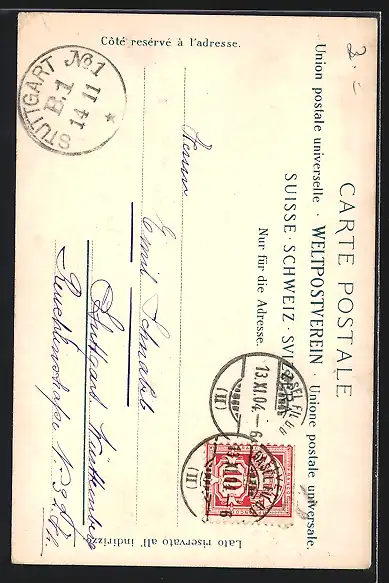 CARTE POSTALE
Union postale universelle · WELTPOSTVEREIN · Unione postale universale.
SUISSE · SCHWEIZ · SVIZZERA
Nur für die Adresse.
Côté réservé à l'adresse.
Lato riservato all' indirizzo
Herrn
Emil Schnabl
Stuttgart Württemberg
Reuchlinstrasse N.
STUTTGART No. 1
B.1
14 11
BASEL
13.XI.04.–6
(II)
BASEL
(II)
10